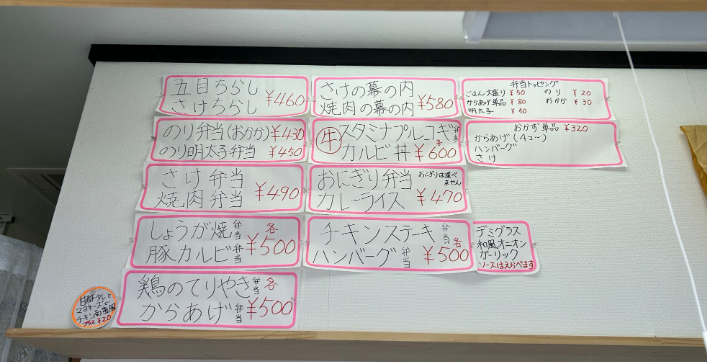 五目ちらし
さけちらし ¥460
のり弁当(おかか) ¥430
のり明太子弁当 ¥450
さけ弁当
焼肉弁当 ¥490
しょうが焼弁当
豚カルビ弁当 各¥500
鶏のてりやき弁当
からあげ弁当 各¥500
さけの幕の内
焼肉の幕の内 ¥580
牛スタミナプルコギ弁当
カルビ丼 各¥600
おにぎり弁当 おにぎりは選べません
カレーライス ¥470
チキンステーキ弁当
ハンバーグ弁当 各¥500
弁当トッピング
ごはん大盛り ¥50 のり ¥20
からあげ単品 ¥80 おかか ¥30
明太子 ¥60
おかず単品 ¥320
からあげ(4コ〜)
ハンバーグ
さけ
デミグラス
和風オニオン
ガーリック
ソースはえらべます
マヨネーズで
チキン南蛮風
プラス¥20